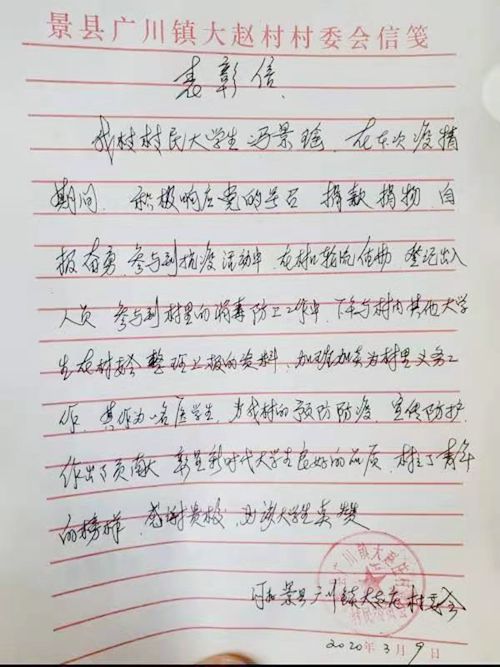 景县广川镇大赵村村委会信笺
表彰信
我村村民大学生冯景瑶，在本次疫情
期间，积极响应党的号召 捐款捐物，自
报奋勇 参与到抗疫活动中，在村口轮流值勤 登记出入
人员 参与到村里的消毒防卫工作中，下午与村内其他大学
生在村委会整理上报的资料，加班加点为村里义务工
作，其作为一名医学生，为我村的预防防疫 宣传防护
作出了贡献 彰显新时代大学生良好的品质，树立了青年
的榜样，感谢贵校，为该大学生点赞
河北景县广川镇大赵村村委会
2020年3月9日